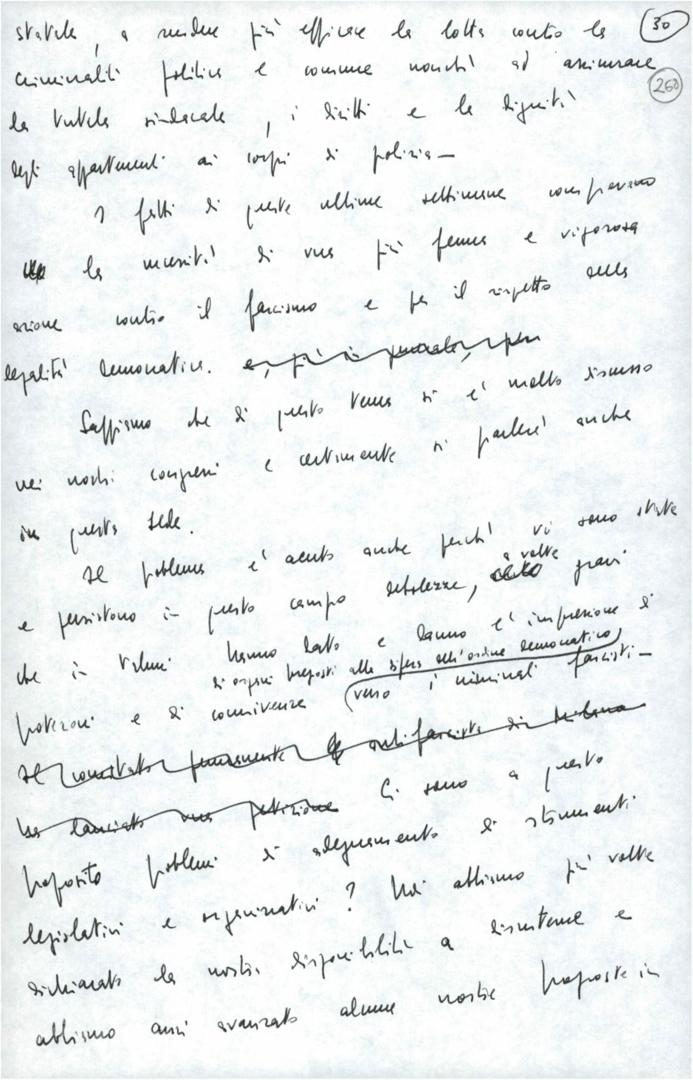 30
statale, a rendere più efficace la lotta contro la
260
criminalità politica e comune nonché ad assicurare
la tutela sindacale, i diritti e la dignità
degli appartenenti ai corpi di polizia—
I fatti di queste ultime settimane comprovano
la necessità di una più ferma e vigorosa
azione contro il fascismo e per il rispetto della
legalità democratica. e, più in generale, per
Sappiamo che di questo tema si è molto discusso
nei nostri congressi e certamente si parlerà anche
in questa sede.
Il problema è acuto anche perché vi sono state
a volte
e persistono in questo campo debolezze, gravi
che in taluni hanno dato e danno l'impressione di
di organi preposti alla difesa dell'ordine democratico
protezioni e di connivenze verso i criminali fascisti—
Il comitato permanente antifascista di Milano
ha lanciato una petizione Ci sono a questo
proposito problemi di adeguamento di strumenti
legislativi e organizzativi? Noi abbiamo più volte
dichiarato la nostra disponibilità a discuterne e
abbiamo anzi avanzato alcune nostre proposte in